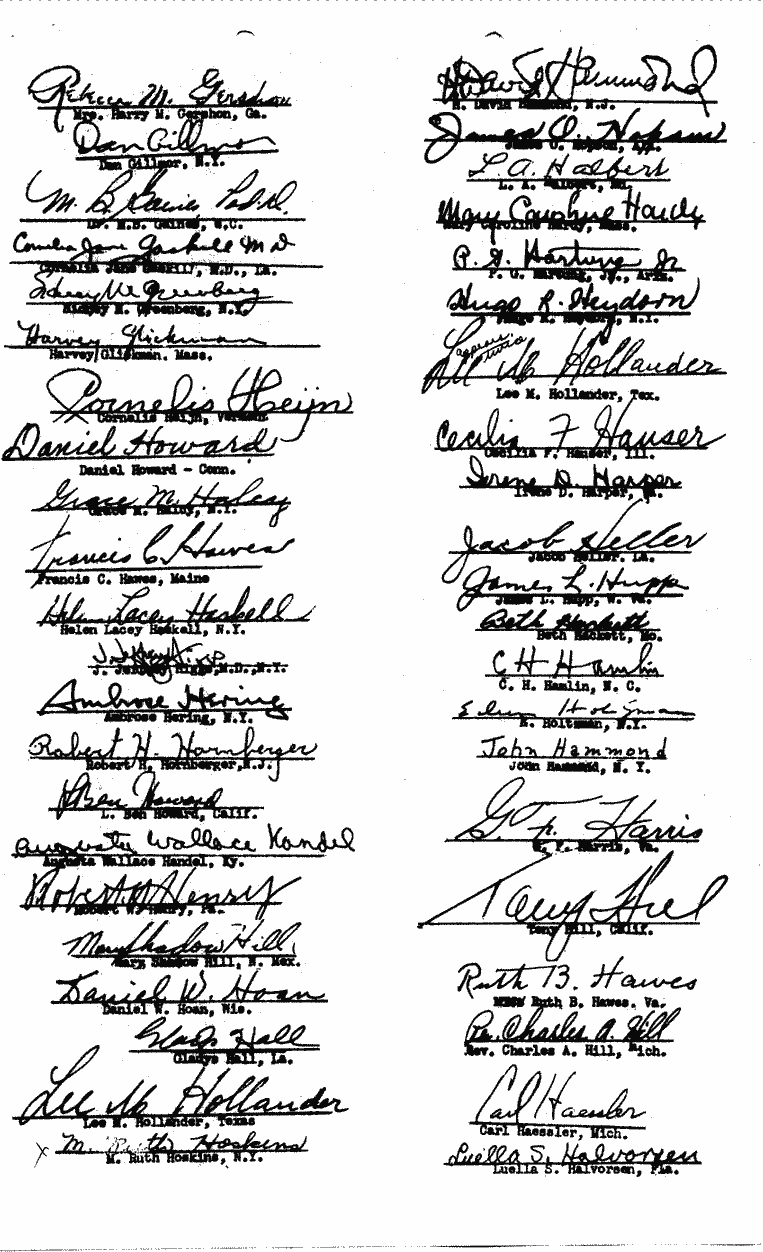 Rebecca M. Gershon
Mrs. Harry M. Gershon, Ga.
Dan Gillmor
Dan Gillmor, N.Y.
M. B. Gaines Pod.D.
Dr. M.B. Gaines, D.C.
Cornelia Jane Gaskill M D
Cornelia Jane Gaskill, M.D., La.
Sidney M. Greenberg
Sidney M. Greenberg, N.Y.
Harvey Glickman
Harvey Glickman. Mass.
Cornelis Heijn
Cornelis Heijn, Vermont
Daniel Howard
Daniel Howard - Conn.
Grace M. Haley
Grace M. N.Y.
Francis C. Hawes
Francis C. Hawes, Maine
Helen Lacey Haskell
Helen Lacey Haskell, N.Y.
J. M.D., N.Y.
Ambrose Hering
Ambrose Hering, N.Y.
Robert H. Hornberger
Robert H. Hornberger, N.J.
L. Ben Howard
L. Ben Howard, Calif.
Augusta Wallace Handel
Augusta Wallace Handel, Ky.
Robert W. Henry
Robert W. Henry, Pa.
Mary Shadow Hill
Mary Shadow Hill, N. Mex.
Daniel W. Hoan
Daniel W. Hoan, Wis.
Gladys Hall
Gladys Hall, La.
Lee M Hollander
Lee M. Hollander, Texas
M. Ruth Hoskins
M. Ruth Hoskins, N.Y.
H. David Hammond
H. David Hammond, N.J.
James O. Hopson
James O. Hopson,
L. A. Halbert
L. A. Halbert, Mo.
Mary Caroline Hardy
Mary Caroline Hardy, Mass.
P. G. Hartung Jr
P. G. Hartung, Jr., Ariz.
Hugo R. Heydorn
Hugo R. Heydorn, N.Y.
Lee M Hollander
Lee M. Hollander, Tex.
Cecilia F Hauser
Cecilia F. Hauser, Ill.
Irene D. Harper
Irene D. Harper, Pa.
Jacob Heller
Jacob Heller. La.
James L. Hupp
James L. Hupp, W. Va.
Beth Hackett
Beth Hackett, Mo.
C H Hamlin
C. H. Hamlin, N. C.
Holtzman
E. Holtzman, N.Y.
John Hammond
John Hammond, N. Y.
G. F. Harris
G. F. Harris, Va.
Tany Hill
Tany Hill, Calif.
Ruth B. Hawes
Miss Ruth B. Hawes. Va.
Rev. Charles A. Hill
Rev. Charles A. Hill, Mich.
Carl Haessler
Carl Haessler, Mich.
Luella S. Halvorsen
Luella S. Halvorsen, Fla.